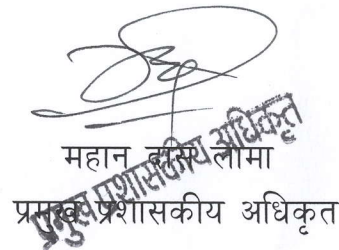 महान दासि लामा
प्रमुख प्रशासकीय अधिकृत
प्रमुख प्रशासकीय अधिकृत